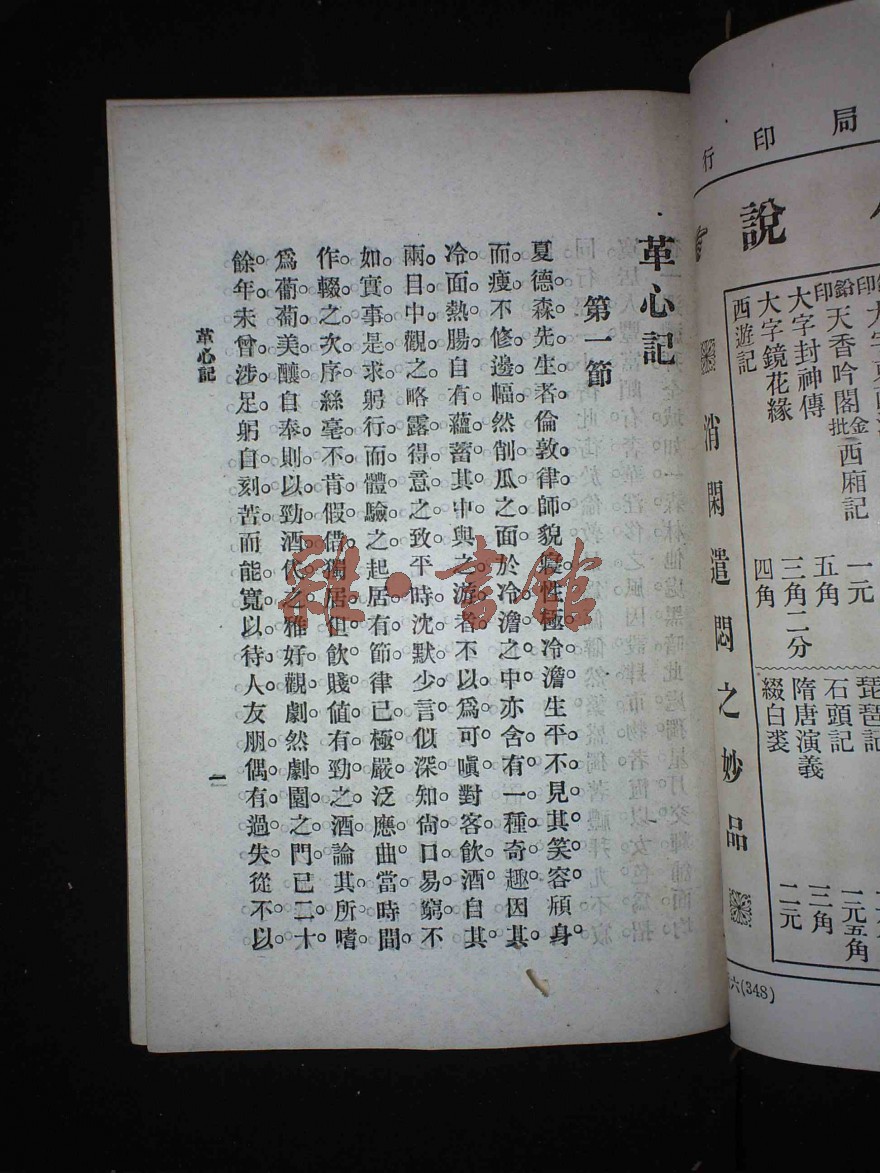 革心記
第一節
夏德森先生者倫敦律師貌癡性極冷澹生平不見其笑容頎身
而瘦不修邊幅然削瓜之面於冷澹之中亦含有一種奇趣因其
冷面熱腸自有蘊蓄其中與之游者不以爲可嗔對客飲酒自其
兩目中觀之略露得意之致平時沈默少言似深知尙口易窮不
如實事是求躬行而體驗之起居有節律已極嚴泛應曲當時間
作輟之次序絲毫不肯假借獨居但飲賤值有勁之酒論其所嗜
爲葡萄美釀自奉則以勁酒代之雅好觀劇然劇園之門已二十
餘年未曾涉足躬自刻苦而能寬以待人友朋偶有過失從不以
革心記
一
雜·書館
局印行
說
鉛印天香吟閣金批西廂記 一元
大字封神傳 五角
大字鏡花緣 三角二分
西遊記 四角
琵琶記 一元五角
石頭記
隋唐演義 三角
綴白裘 二元
消閑遣悶之妙品
六(348)